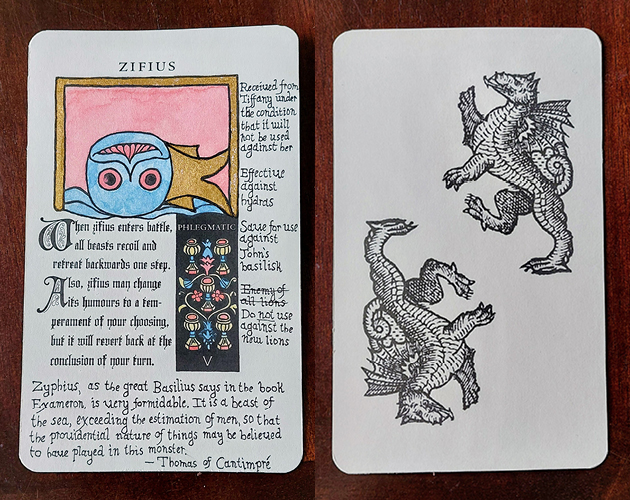 ZIFIUS
Received from
Tiffany under
the condition
that it will
not be used
against her
Effective
against
hydras
Save for use
against
John's
basilisk
Enemy of
all lions
Do not use
against the
new lions
When zifius enters battle,
all beasts recoil and
retreat backwards one step.
Also, zifius may change
its humours to a tem-
perament of your choosing,
but it will revert back at the
conclusion of your turn.
PHLEGMATIC
V
Zyphius, as the great Basilius says in the book
Exameron, is very formidable. It is a beast of
the sea, exceeding the estimation of men, so that
the providential nature of things may be believed
to have played in this monster.
— Thomas of Cantimpré